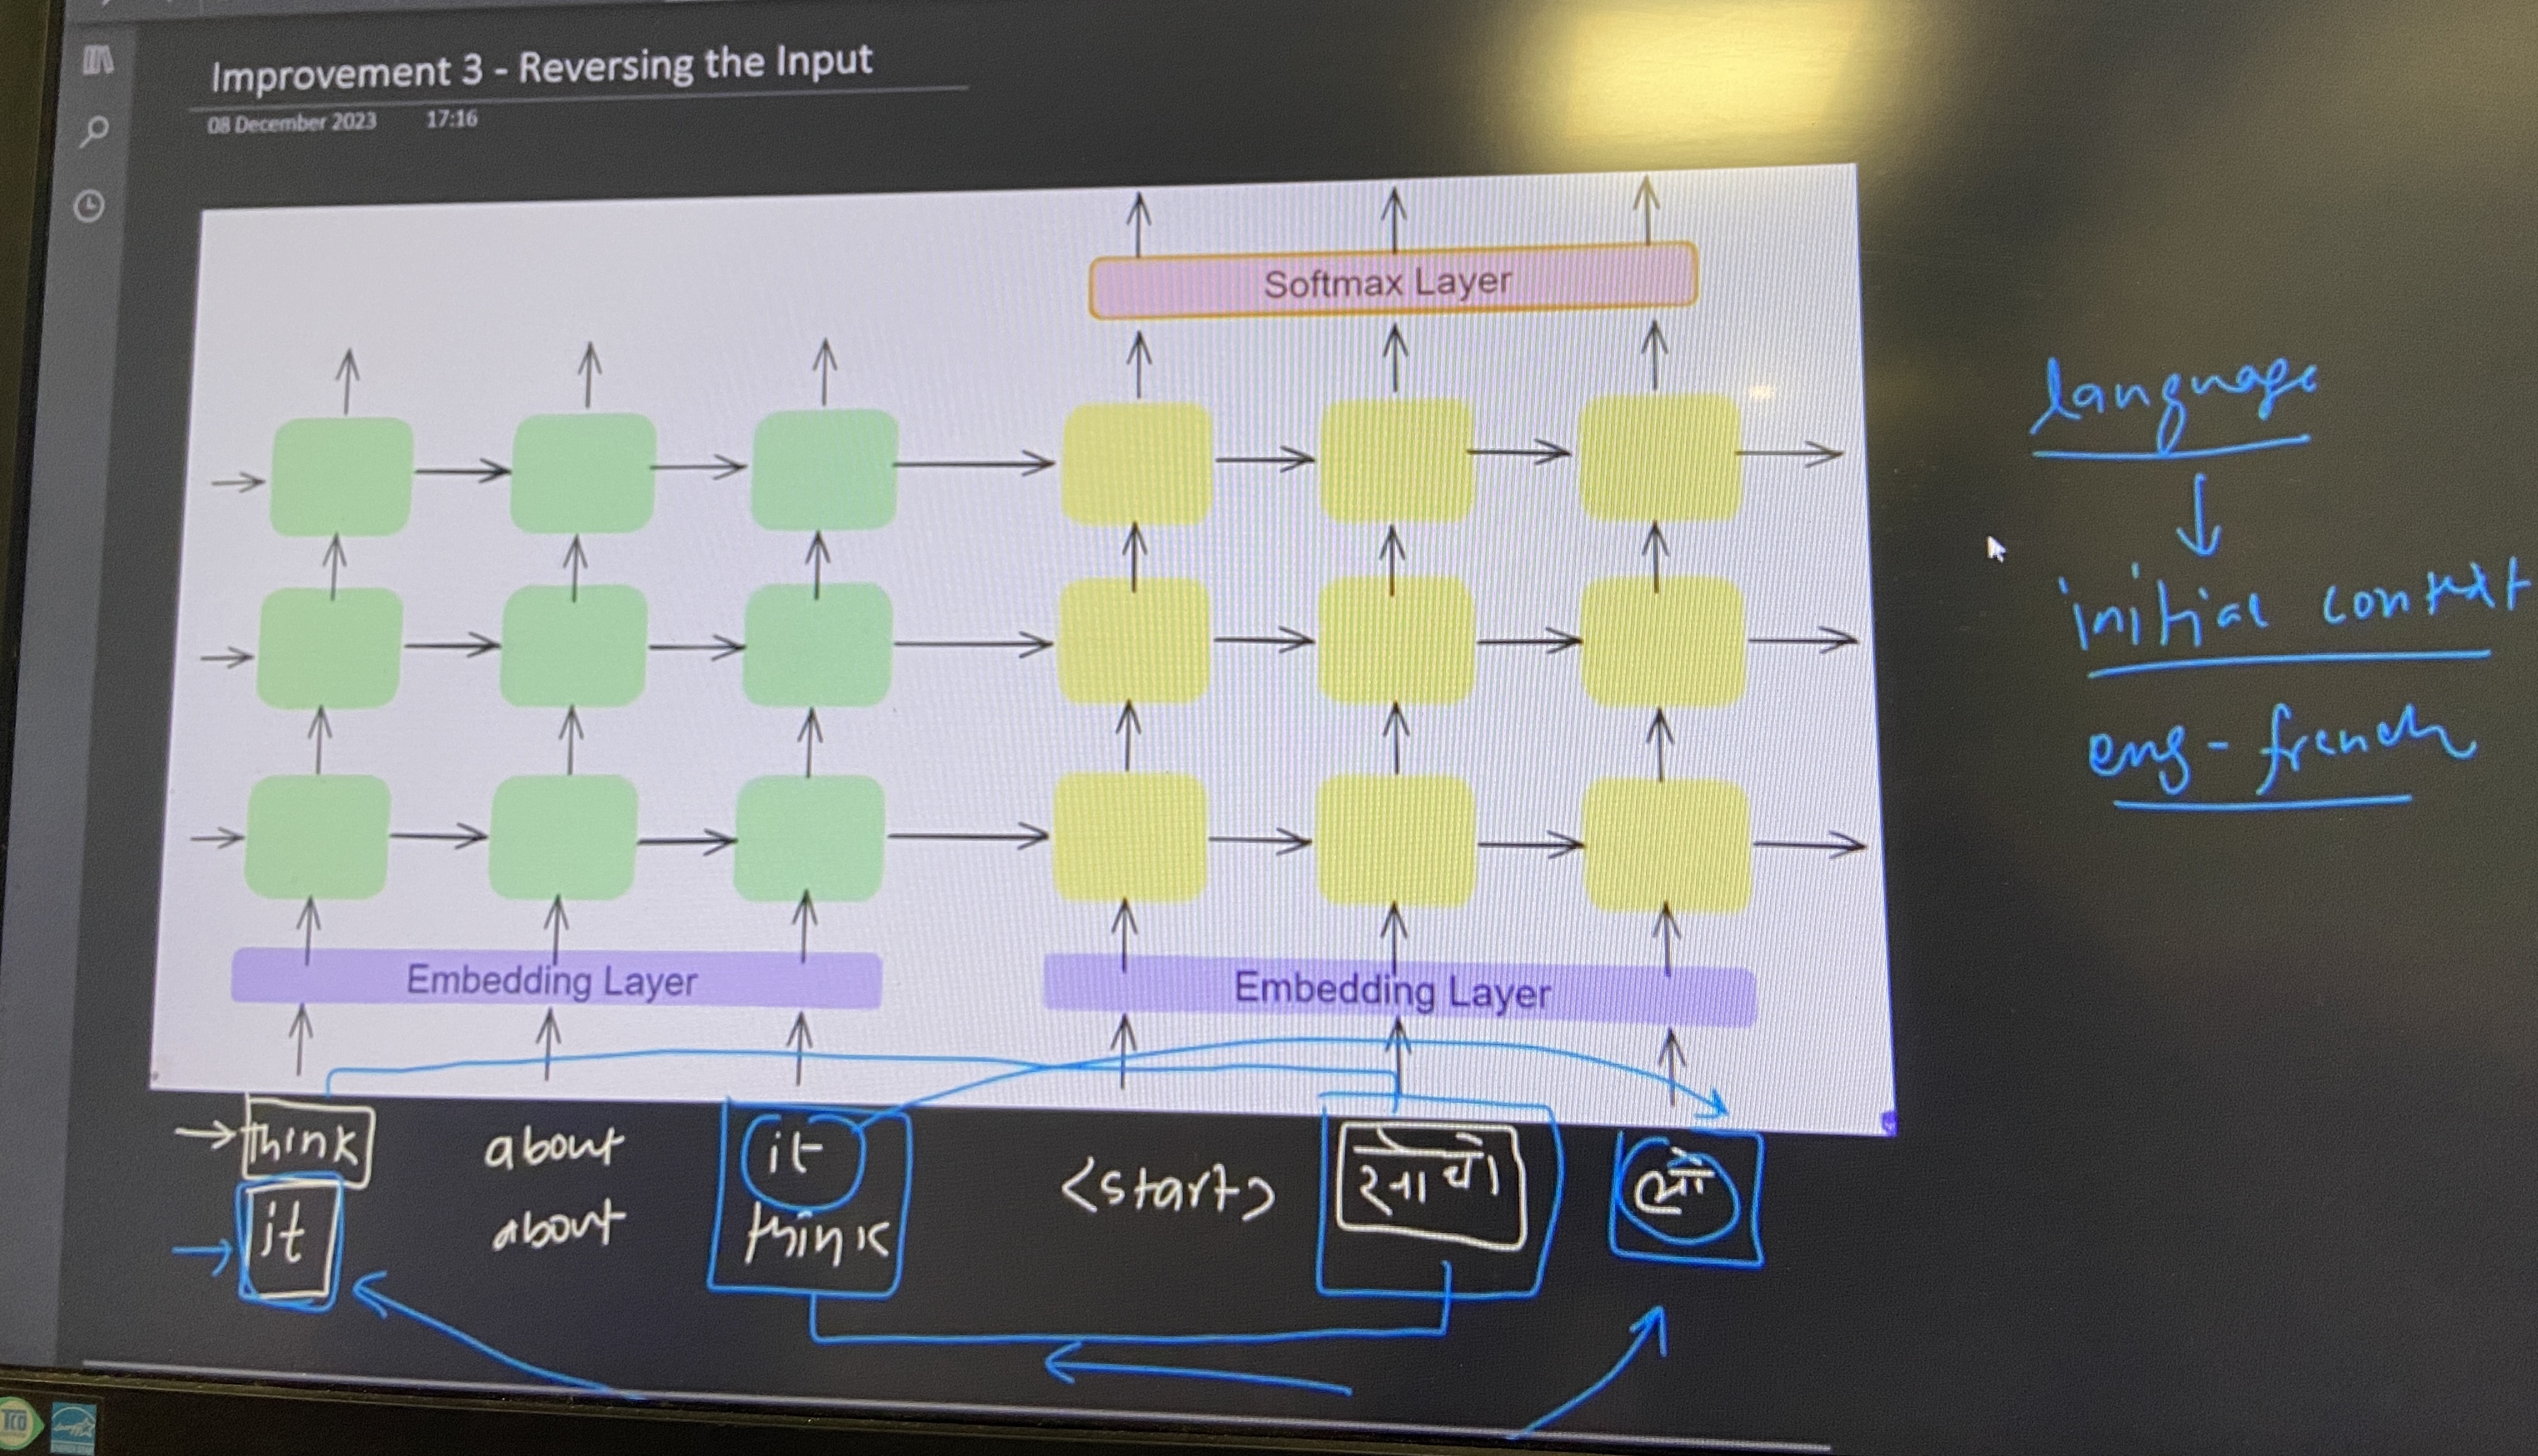 Improvement 3 - Reversing the Input
08 December 2023 17:16
Softmax Layer
Embedding Layer
Embedding Layer
think about it <start>
it about think
language
initial context
eng - french
TCO